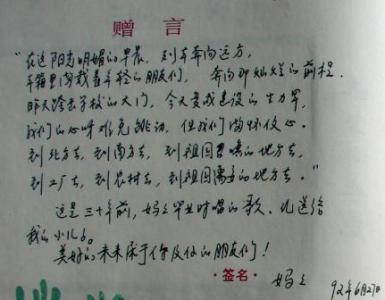 赠言
“在这阳光明媚的早晨,列车奔向远方,
车箱里满载着年轻的朋友们,奔向那灿烂的前程.
昨天除去学校的大门,今天变成建设的生力军,
我们的心呀难免跳动,但我们满怀信心.
到北方去,到南方去,到祖国召唤的地方去,
到工厂去,到农村去,到祖国需要的地方去.”
这是三十年前,妈妈毕业时唱的歌.此送给
我的小儿子。
美好的未来属于你及你的朋友们!
·签名· 妈妈
92年6月27日